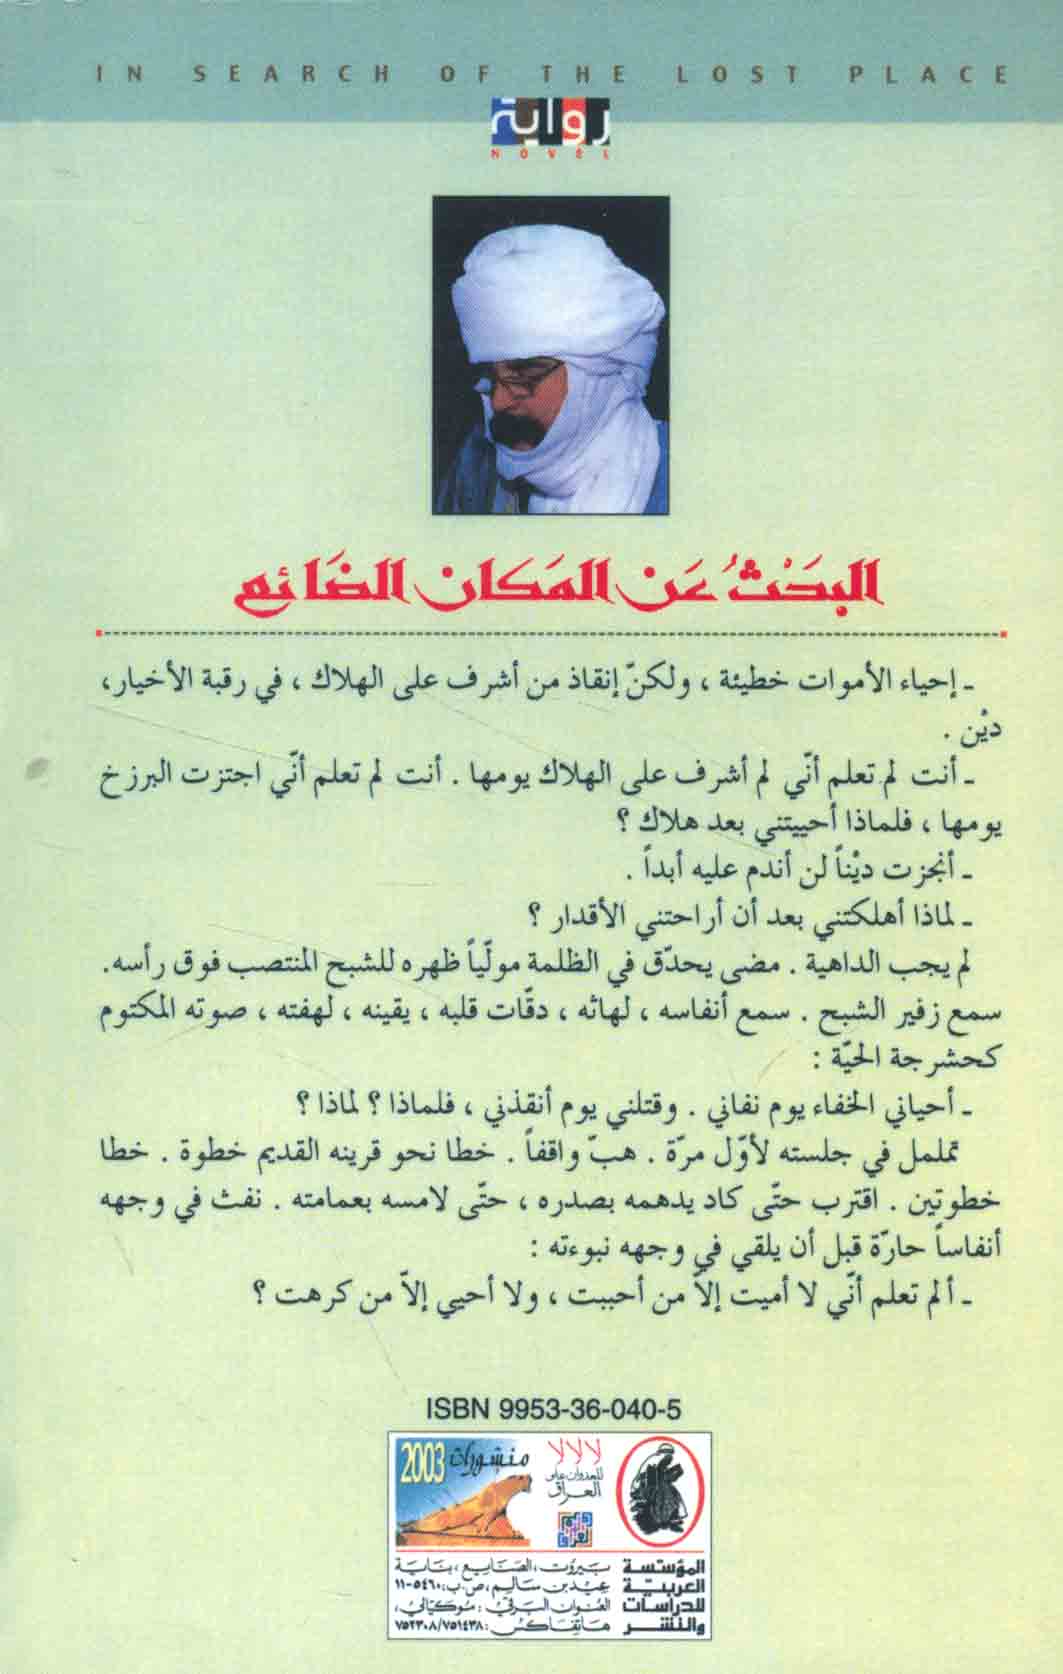 IN SEARCH OF THE LOST PLACE
رواية
NOVEL
البَحْثُ عَن المَكان الضَائع
ـ إحياء الأموات خطيئة ، ولكنّ إنقاذ من أشرف على الهلاك ، في رقبة الأخيار،
ديْن .
ـ أنت لم تعلم أنّي لم أشرف على الهلاك يومها . أنت لم تعلم أنّي اجتزت البرزخ
يومها ، فلماذا أحييتني بعد هلاك ؟
ـ أنجزت ديْناً لن أندم عليه أبداً .
ـ لماذا أهلكتني بعد أن أراحتني الأقدار ؟
لم يجب الداهية . مضى يحدّق في الظلمة مولّياً ظهره للشبح المنتصب فوق رأسه.
سمع زفير الشبح . سمع أنفاسه ، لهاثه ، دقّات قلبه ، يقينه ، لهفته ، صوته المكتوم
كحشرجة الحيّة :
ـ أحياني الخفاء يوم نفاني . وقتلني يوم أنقذني ، فلماذا ؟ لماذا ؟
تململ في جلسته لأوّل مرّة . هبّ واقفاً . خطا نحو قرينه القديم خطوة . خطا
خطوتين . اقترب حتّى كاد يدهمه بصدره ، حتّى لامسه بعمامته . نفث في وجهه
أنفاساً حارّة قبل أن يلقي في وجهه نبوءته :
ـ ألم تعلم أنّي لا أميت إلاّ من أحببت ، ولا أحيي إلاّ من كرهت ؟
ISBN 9953-36-040-5
منشورات 2003
لا لا لا
للعدوان على
العراق
المؤسسة
العربية
للدراسات
والنشر
بيروت ، الصنايع ، بناية
عيد بن سالم ، ص.ب: ٥٤٦٠-١١
العنوان البرقي : موكيالي ،
هاتفاكس : ٧٥٢٣٠٨/٧٥١٤٣٨